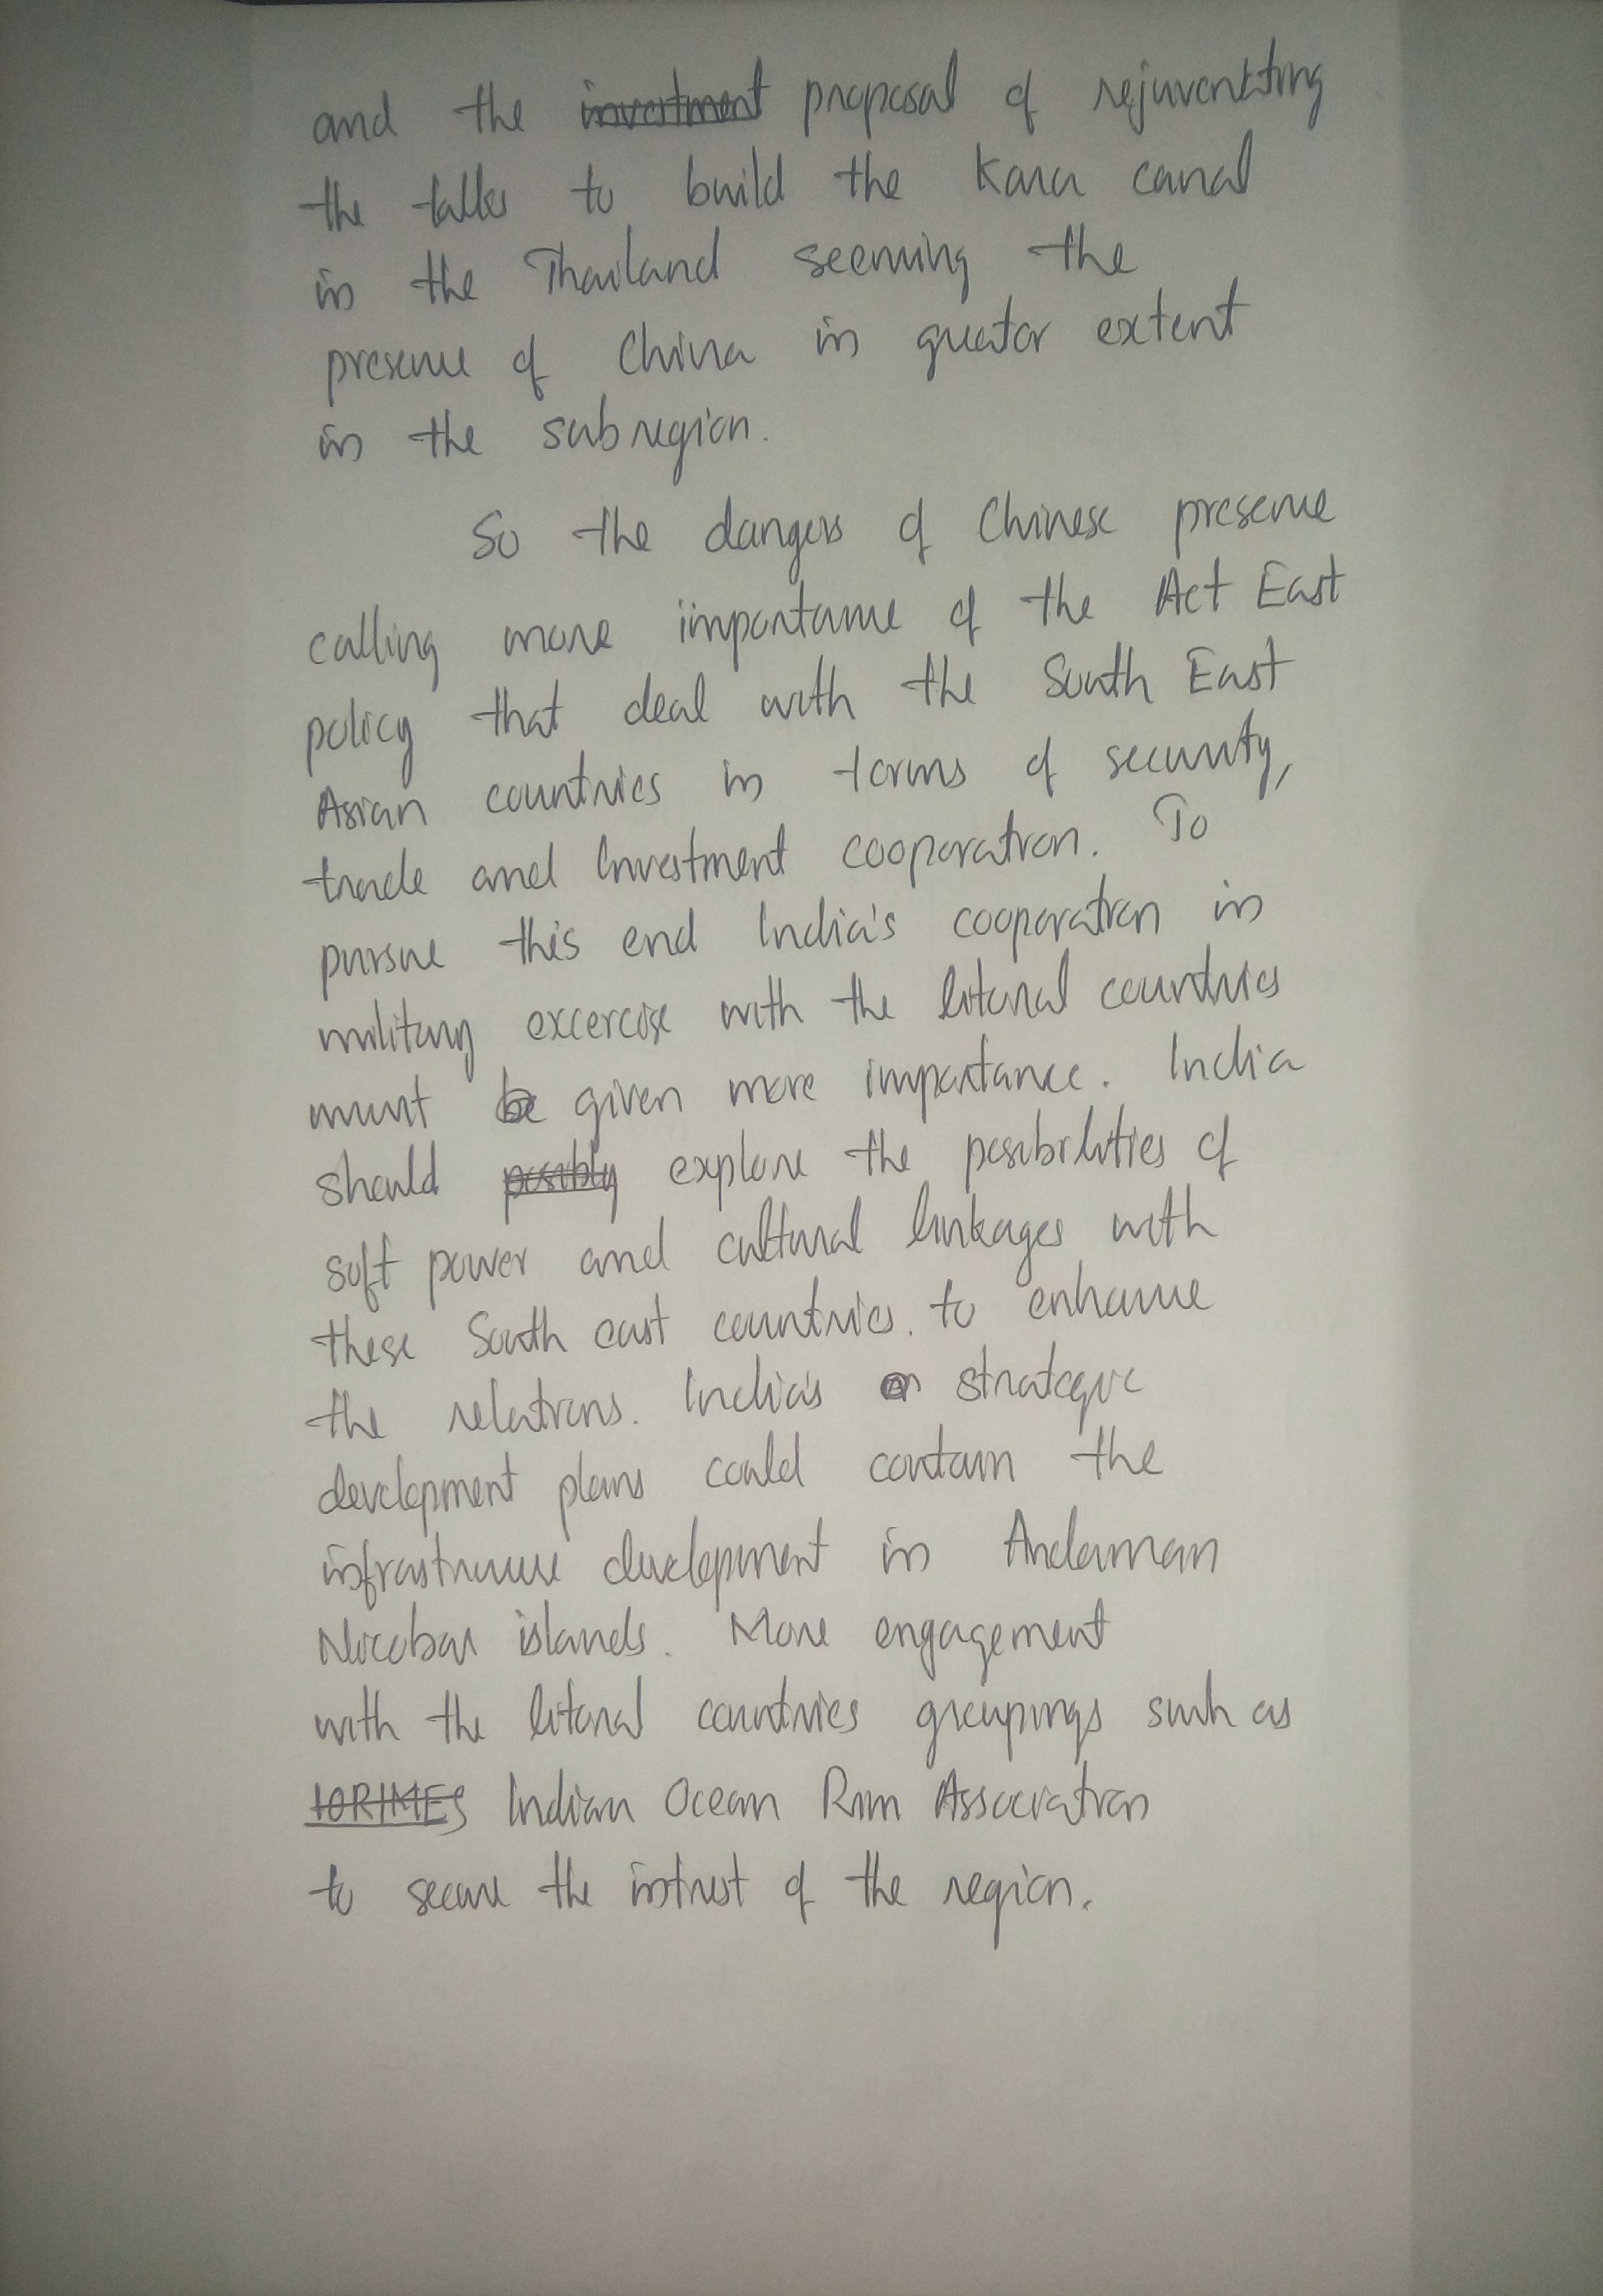 and the investment proposal of rejuvenating
the talks to build the Kara canal
in the Thailand seeming the
presence of China in greater extent
in the subregion.
So the dangers of Chinese presence
calling more importance of the Act East
policy that deal with the South East
Asian countries in terms of security,
trade and Investment cooperation. To
pursue this end India's cooperation in
military excercise with the litoral countries
must be given more importance. India
should possibly explore the posibilities of
soft power and cultural linkages with
these South east countries. to enhance
the relations. India's strategic
development plans could contain the
infrastructure development in Andaman
Nicobar islands. More engagement
with the litoral countries groupings such as
IORIMES Indian Ocean Rim Association
to secure the intrest of the region.